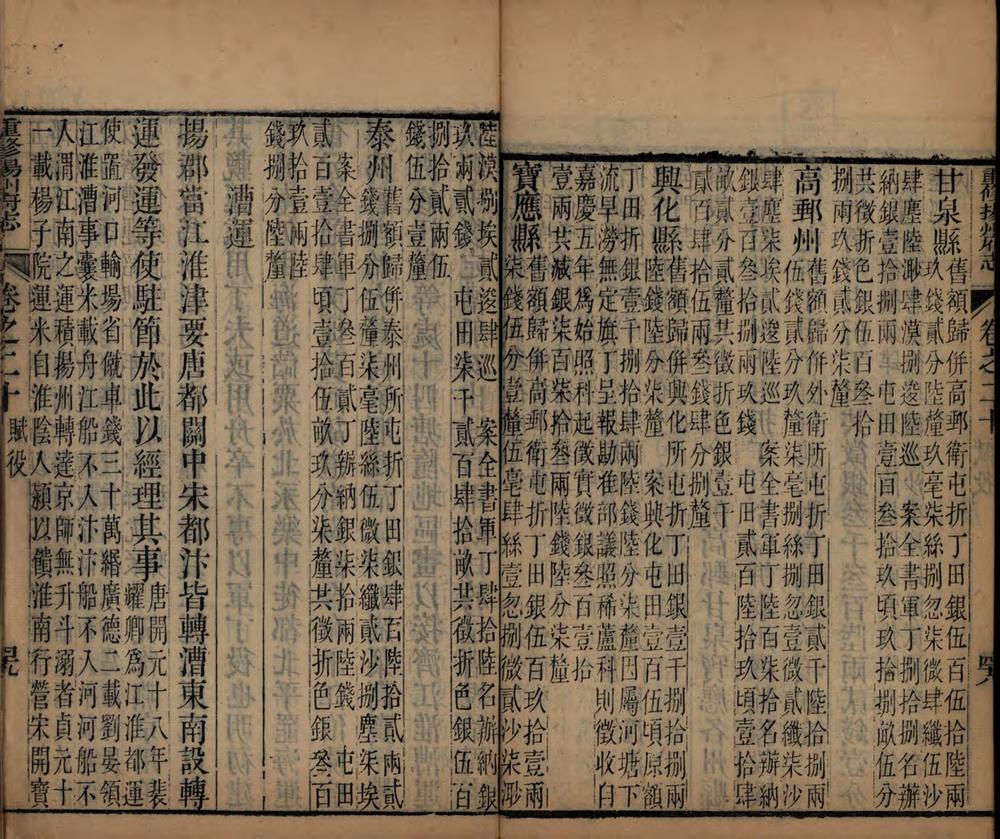 重修揚州府志 卷之二十 賦役 四八
甘泉縣舊額歸併高郵衛屯折丁田銀伍百伍拾陸兩
玖錢貳分陸釐玖毫柒絲捌忽柒微肆纖伍沙
肆塵陸渺肆漠捌逡陸巡 案全書軍丁捌拾捌名辦
納銀壹拾捌兩 屯田壹百叁拾玖頃玖拾捌畝伍分
共徵折色銀伍百叁拾
捌兩玖錢貳分柒釐
高郵州舊額歸併外衛所屯折丁田銀貳千陸拾捌兩
伍錢貳分玖釐柒毫捌絲捌忽壹微貳纖柒沙
肆塵柒埃貳逡陸巡 案全書軍丁陸百柒拾名辦納
銀壹百叁拾捌兩玖錢 屯田貳百陸拾玖頃壹拾肆
畝貳分貳釐共徵折色銀壹千
貳百肆拾伍兩叁錢肆分捌釐
興化縣舊額歸併興化所屯折丁田銀壹千捌拾捌兩
陸錢陸分柒釐 案興化屯田壹百伍頃原額
丁田折銀壹千捌拾肆兩陸錢陸分柒釐因屬河塘下
流旱澇無定旗丁呈報勘准部議照稀蘆科則徵收自
嘉慶五年爲始照科起徵實徵銀叁百
壹兩共減銀柒百柒拾叁兩陸錢陸分柒釐
寶應縣舊額歸併高郵衛屯折丁田銀伍百玖拾壹兩
柒錢伍分壹釐伍毫肆絲壹忽捌微貳沙柒渺
陸漠捌埃貳逡肆巡 案全書軍丁肆拾陸名辦納銀
玖兩貳錢 屯田柒千貳百肆拾畝共徵折色銀伍百
捌拾貳兩伍
錢伍分壹釐
泰州舊額歸併泰州所屯折丁田銀肆百陸拾貳兩貳
錢捌分伍釐柒毫陸絲伍微柒纖貳沙捌塵柒埃
案全書軍丁叁百貳丁辦納銀柒拾兩陸錢 屯田
貳百壹拾肆頃壹拾伍畝玖分柒釐共徵折色銀叁百
玖拾壹兩陸
錢捌分陸釐
漕運
揚郡當江淮津要唐都關中宋都汴皆轉漕東南設轉
運發運等使駐節於此以經理其事唐開元十八年裴
耀卿爲江淮都運
使置河口輸場省僦車錢三十萬緡廣德二載劉晏領
江淮漕事囊米載舟江船不入汴汴船不入河河船不
入渭江南之運積揚州轉達京師無升斗溺者貞元十
一載楊子院運米自淮陰入潁以饋淮南行營宋開寶
重修揚州府志 卷之二十 賦役 四九